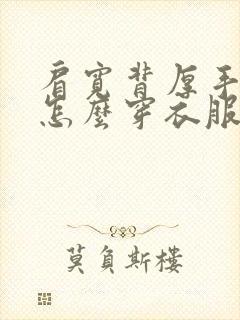 肩宽背厚手
怎麽穿衣服
莫負斯樓